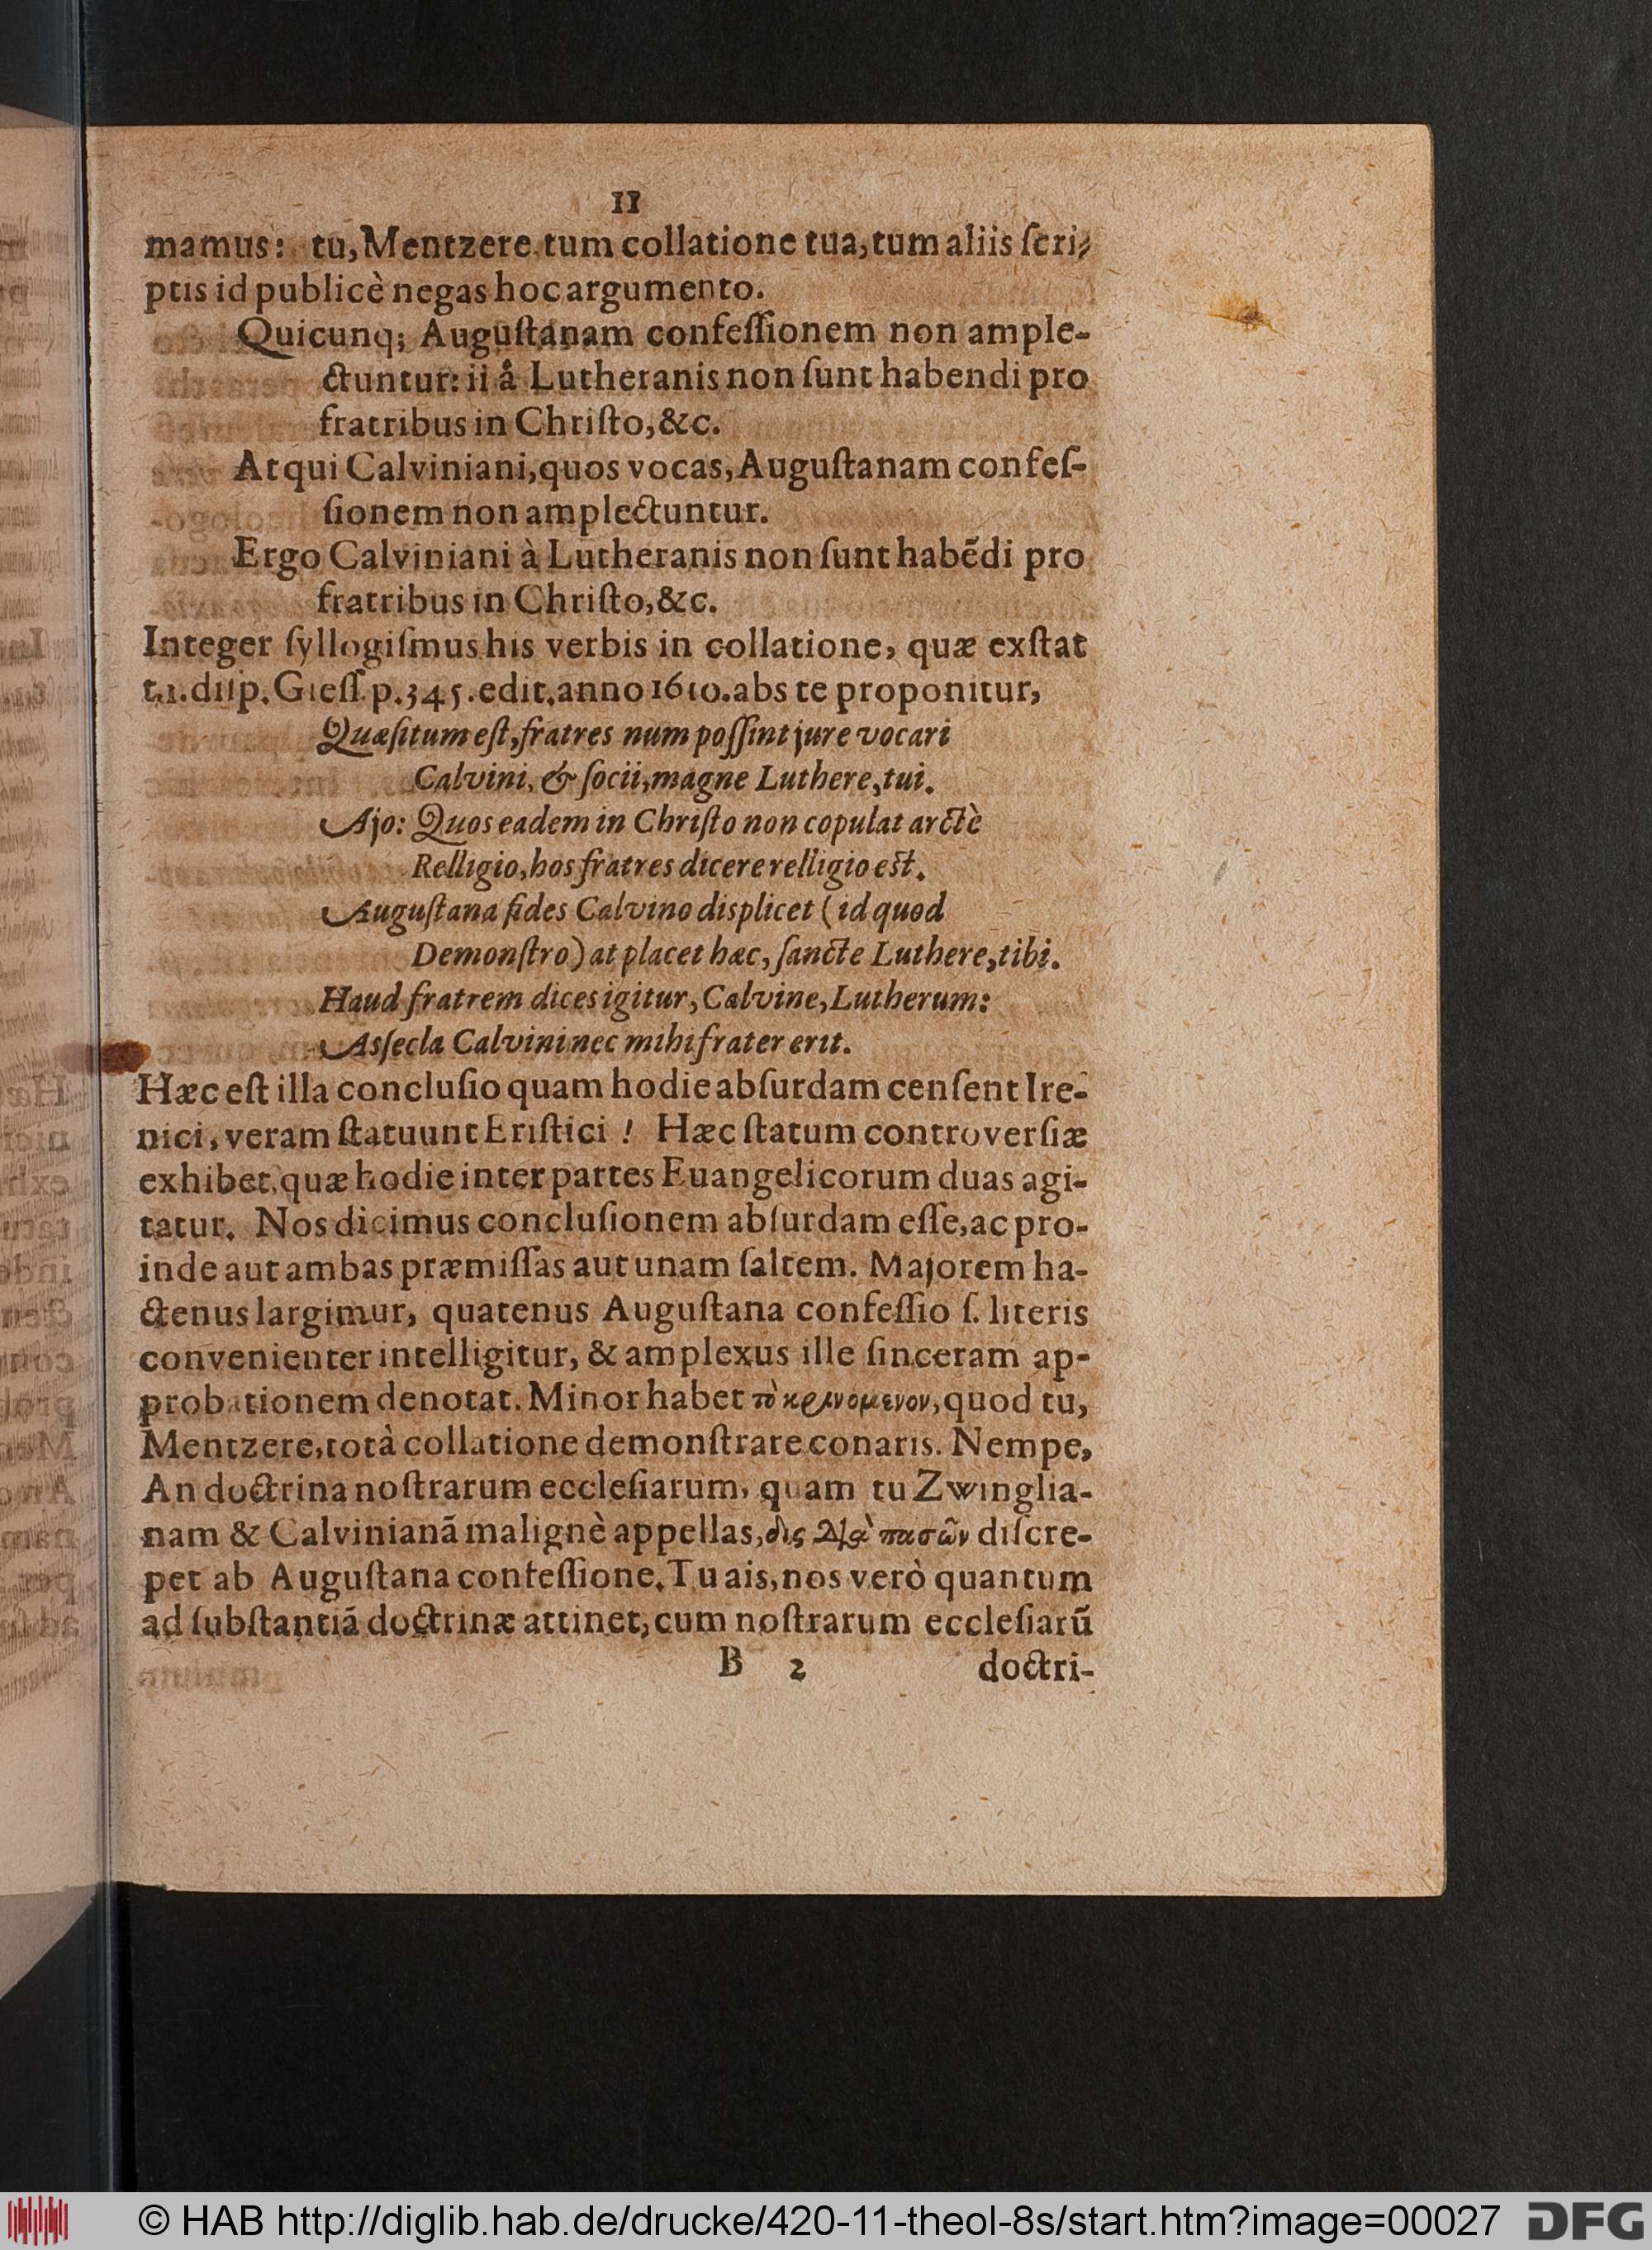 11
mamus: tu, Mentzere tum collatione tua, tum aliis ſcri-
ptis id publicè negas hoc argumento.
Quicunq; Auguſtanam confeſſionem non ample-
ctuntur: ii â Lutheranis non ſunt habendi pro
fratribus in Chriſto, &c.
Atqui Calviniani, quos vocas, Auguſtanam confeſ-
ſionem non amplectuntur.
Ergo Calviniani à Lutheranis non ſunt habẽdi pro
fratribus in Chriſto, &c.
Integer ſyllogiſmus his verbis in collatione, quæ exſtat
t.1. diſp. Gieſſ. p. 345. edit. anno 1610. abs te proponitur,
Quæſitum eſt, fratres num poſſint jure vocari
Calvini, & ſocii, magne Luthere, tui.
Ajo: Quos eadem in Chriſto non copulat arctè
Relligio, hos fratres dicere relligio eſt.
Auguſtana fides Calvino displicet (id quod
Demonſtro) at placet hæc, ſancte Luthere, tibi.
Haud fratrem dices igitur, Calvine, Lutherum:
Asſecla Calvini nec mihi frater erit.
Hæc eſt illa concluſio quam hodie abſurdam cenſent Ire-
nici, veram ſtatuunt Eriſtici! Hæc ſtatum controverſiæ
exhibet, quæ hodie inter partes Euangelicorum duas agi-
tatur. Nos dicimus concluſionem abſurdam eſſe, ac pro-
inde aut ambas præmiſſas aut unam ſaltem. Majorem ha-
ctenus largimur, quatenus Auguſtana confeſſio ſ. literis
convenienter intelligitur, & amplexus ille ſinceram ap-
probationem denotat. Minor habet τὸ κρινομενον, quod tu,
Mentzere, totâ collatione demonſtrare conaris. Nempe,
An doctrina noſtrarum eccleſiarum, quam tu Zwinglia-
nam & Calvinianã malignè appellas, δὶς Διὰ πασῶν diſcre-
pet ab Auguſtana confeſſione. Tu ais, nos verò quantum
ad ſubſtantiã doctrinæ attinet, cum noſtrarum eccleſiarũ
B 2 doctri-
© HAB http://diglib.hab.de/drucke/420-11-theol-8s/start.htm?image=00027 DFG